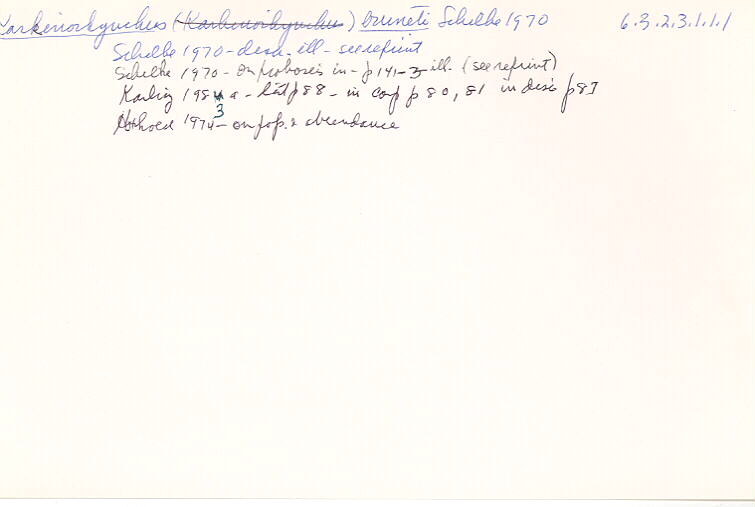 Karkinorhynchus (Karkinorhynchus) bruneti Schilke 1970 6.3.2.3.1.1.1
Schilke 1970 - descr. - ill - see reprint
Schilke 1970 - on proboscis in - p 141-3 - ill. (see reprint)
Karling 1983 a - list p 88 - in comp p 80, 81 in disc p 87
1974 - on pop. & abundance